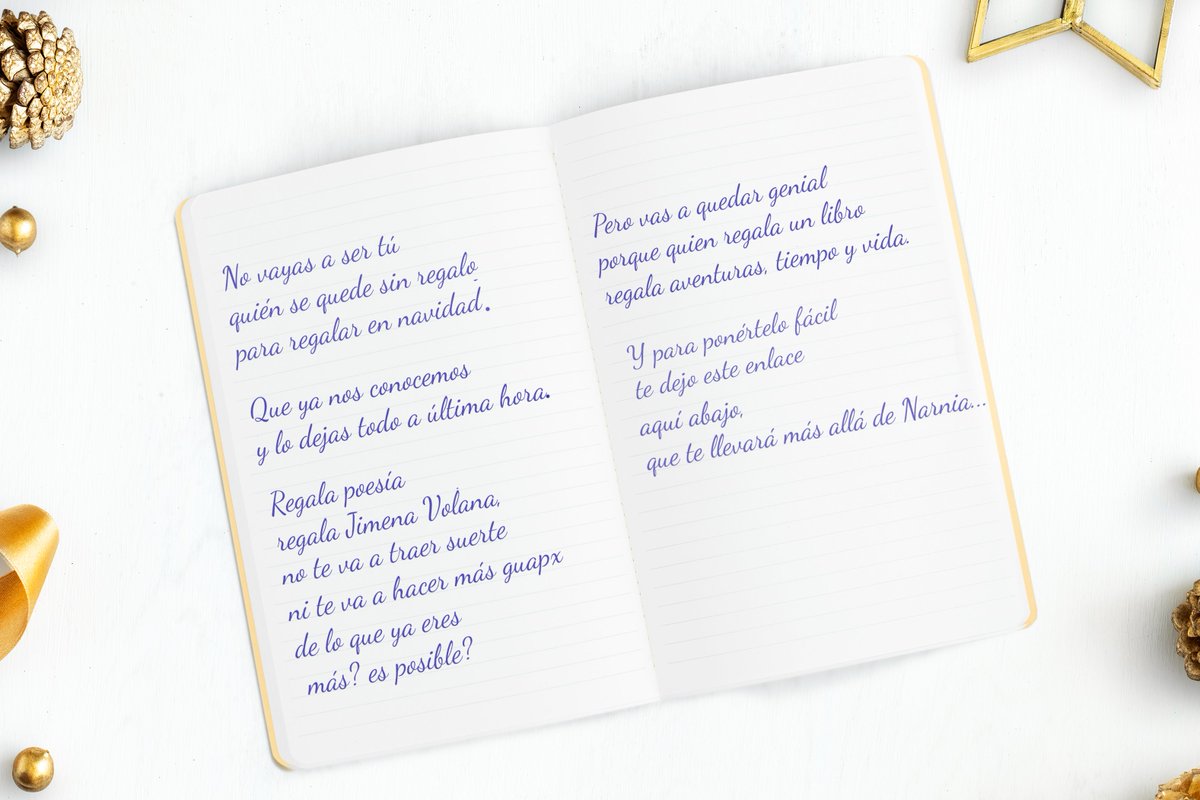 No vayas a ser tú
quién se quede sin regalo
para regalar en navidad.
Que ya nos conocemos
y lo dejas todo a última hora.
Regala poesía
regala Jimena Volana,
no te va a traer suerte
ni te va a hacer más guapx
de lo que ya eres
más? es posible?
Pero vas a quedar genial
porque quien regala un libro
regala aventuras, tiempo y vida.
Y para ponértelo fácil
te dejo este enlace
aquí abajo,
que te llevará más allá de Narnia...